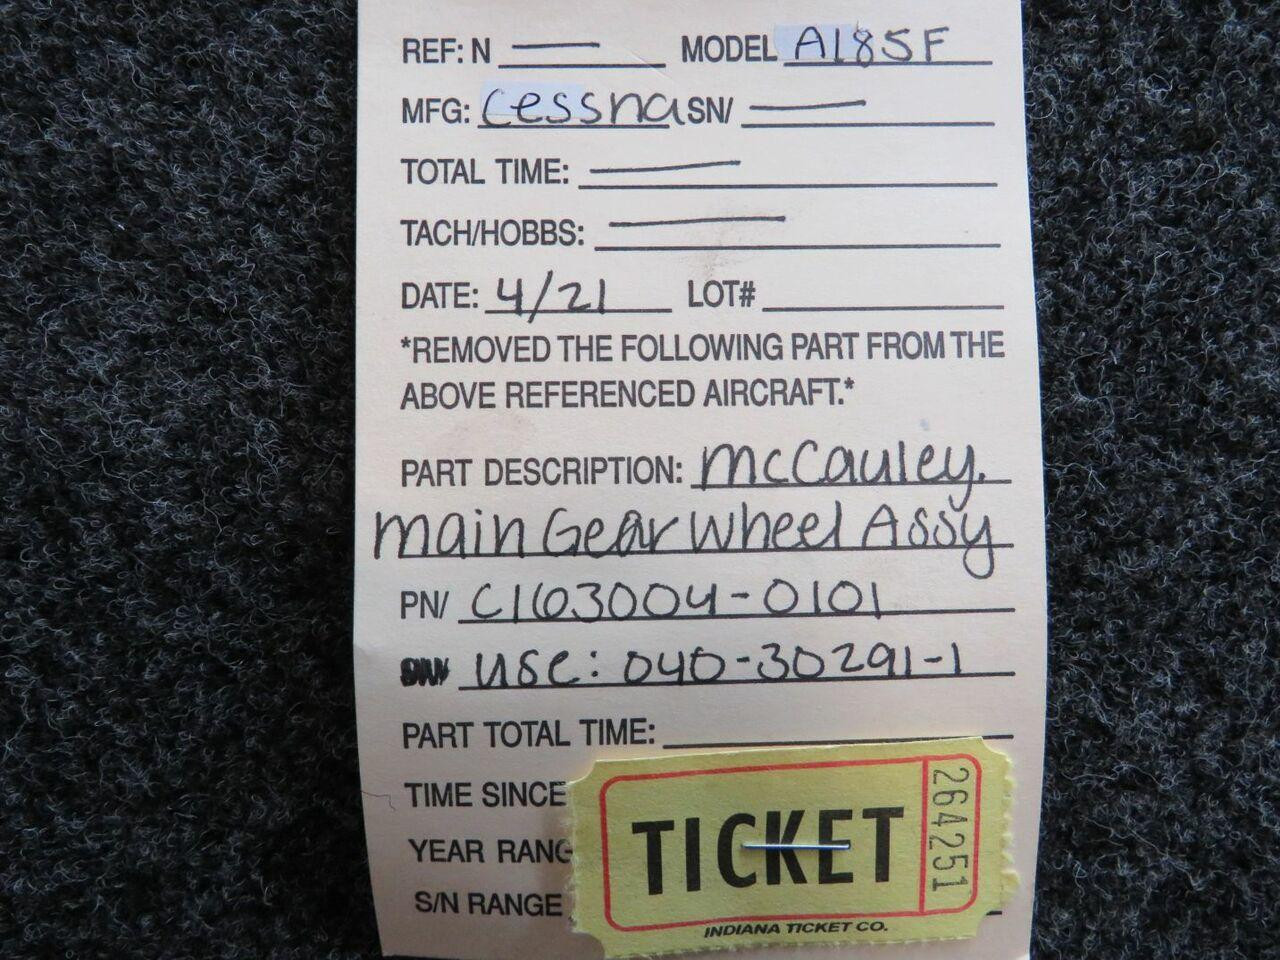 REF: N — MODEL A185F
MFG: Cessna SN/ —
TOTAL TIME: —
TACH/HOBBS: —
DATE: 4/21 LOT#
*REMOVED THE FOLLOWING PART FROM THE
ABOVE REFERENCED AIRCRAFT.*
PART DESCRIPTION: McCauley
Main Gear Wheel Assy
PN/ C163004-0101
use: 040-30291-1
PART TOTAL TIME:
TIME SINCE
YEAR RANG
S/N RANGE
TICKET
264251
INDIANA TICKET CO.